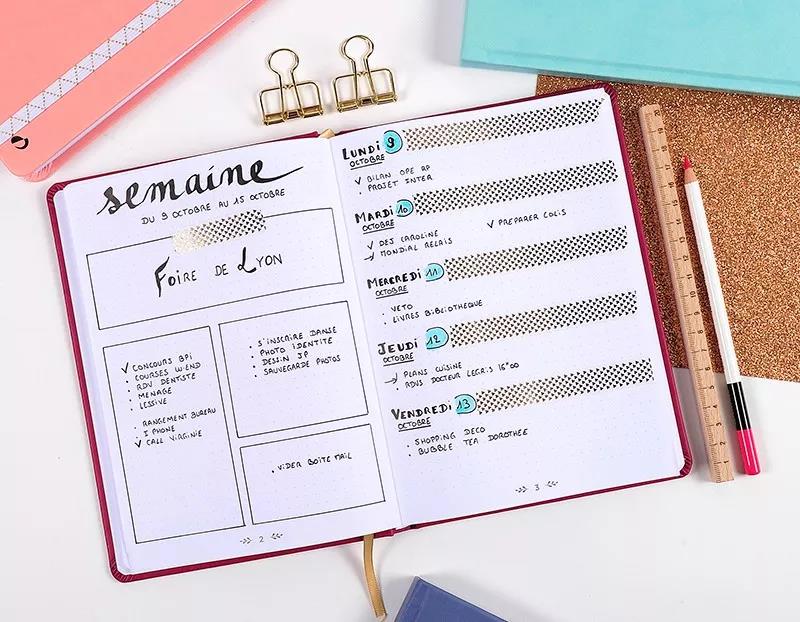 semaine
DU 9 OCTOBRE AU 15 OCTOBRE
FOIRE DE LYON
CONCOURS BPI
COURSES W.END
RDV DENTISTE
MENAGE
LESSIVE
RANGEMENT BUREAU
I PHONE
CALL VIRGINIE
S'INSCRIRE DANSE
PHOTO IDENTITE
DESSIN JP
SAUVEGARDE PHOTOS
VIDER BOITE MAIL
2
LUNDI 9
OCTOBRE
BILAN OPE RP
PROJET INTER
MARDI 10
OCTOBRE
DEJ CAROLINE
MONDIAL RELAIS
PREPARER COLIS
MERCREDI 11
OCTOBRE
VETO
LIVRES BIBLIOTHEQUE
JEUDI 12
OCTOBRE
PLANS CUISINE
RDVS DOCTEUR LEGRIS 16°00
VENDREDI 13
OCTOBRE
SHOPPING DECO
BUBBLE TEA DOROTHEE
3